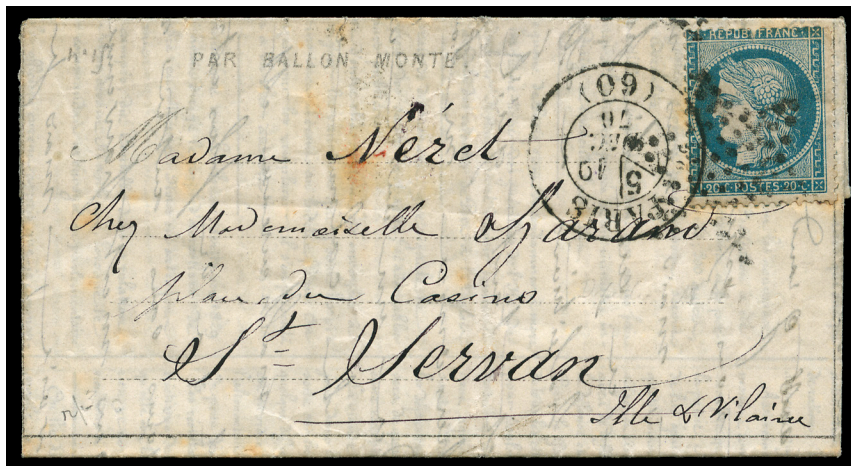 PAR BALLON MONTÉ.
REPUB. FRANC.
20 C. POSTES 20 C.
PARIS
5
19
DEC
70
(60)
Madame Nézet
chez Mademoiselle
place du Casino
St Servan
Ille & Vilaine